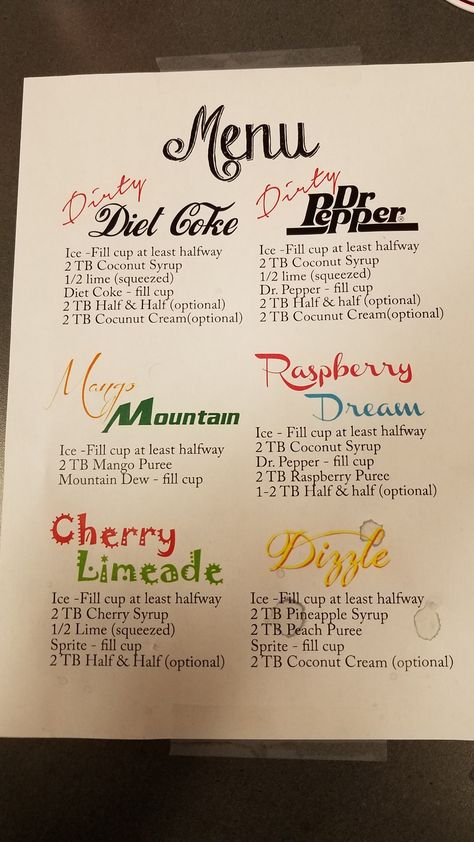 Menu
Dirty
Diet Coke
Ice -Fill cup at least halfway
2 TB Coconut Syrup
1/2 lime (squeezed)
Diet Coke - fill cup
2 TB Half & Half (optional)
2 TB Cocunut Cream(optional)
Dirty
Dr
Pepper
Ice -Fill cup at least halfway
2 TB Coconut Syrup
1/2 lime (squeezed)
Dr. Pepper - fill cup
2 TB Half & half (optional)
2 TB Cocunut Cream(optional)
Mango
Mountain
Ice -Fill cup at least halfway
2 TB Mango Puree
Mountain Dew - fill cup
Raspberry
Dream
Ice - Fill cup at least halfway
2 TB Coconut Syrup
Dr. Pepper - fill cup
2 TB Raspberry Puree
1-2 TB Half & half (optional)
Cherry
Limeade
Ice -Fill cup at least halfway
2 TB Cherry Syrup
1/2 Lime (squeezed)
Sprite - fill cup
2 TB Half & Half (optional)
Dizzle
Ice -Fill cup at least halfway
2 TB Pineapple Syrup
2 TB Peach Puree
Sprite - fill cup
2 TB Coconut Cream (optional)